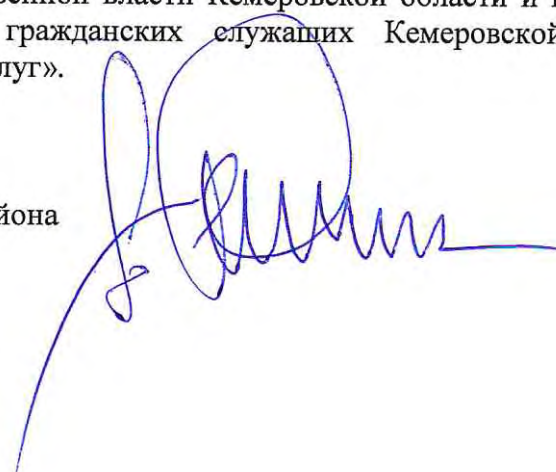 венной власти Кемеровской области и
гражданских служащих Кемеровской
луг».
йона